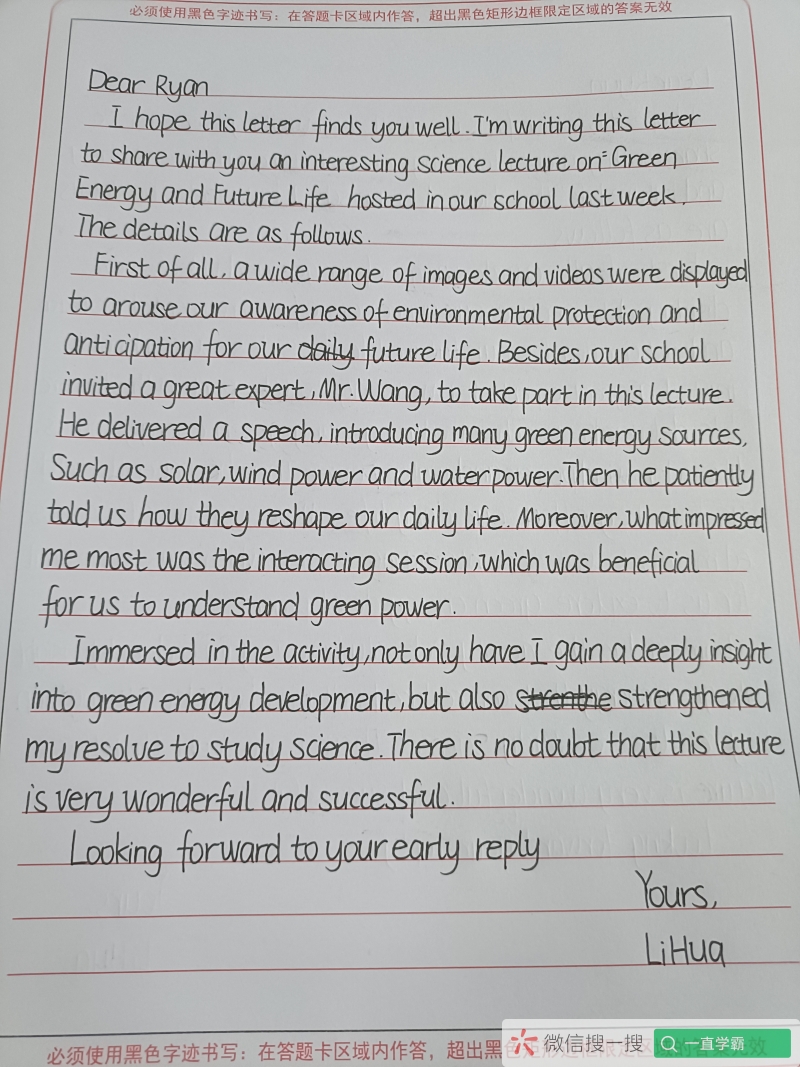 必须使用黑色字迹书写：在答题卡区域内作答，超出黑色矩形边框限定区域的答案无效
Dear Ryan
I hope this letter finds you well. I'm writing this letter
to share with you an interesting science lecture on: Green
Energy and Future Life hosted in our school last week.
The details are as follows.
First of all, a wide range of images and videos were displayed
to arouse our awareness of environmental protection and
anticipation for our daily future life. Besides, our school
invited a great expert, Mr. Wang, to take part in this lecture.
He delivered a speech, introducing many green energy sources,
Such as solar, wind power and water power. Then he patiently
told us how they reshape our daily life. Moreover, what impressed
me most was the interacting session, which was beneficial
for us to understand green power.
Immersed in the activity, not only have I gain a deeply insight
into green energy development, but also strenthe strengthened
my resolve to study science. There is no doubt that this lecture
is very wonderful and successful.
Looking forward to your early reply
Yours,
LiHua
必须使用黑色字迹书写：在答题卡区域内作答，超出黑
微信搜一搜 一直学霸